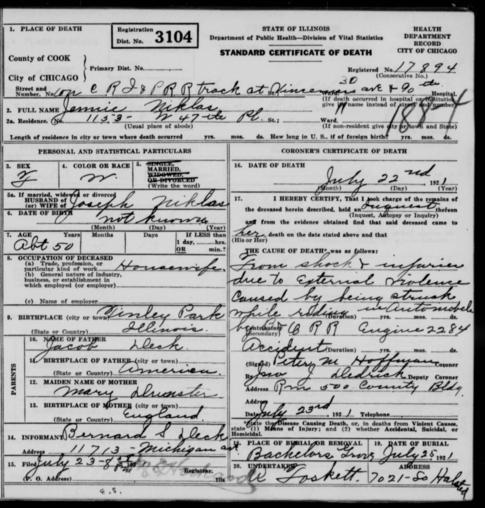 1. PLACE OF DEATH
Registration Dist. No. 3104
STATE OF ILLINOIS
Department of Public Health—Division of Vital Statistics
STANDARD CERTIFICATE OF DEATH
HEALTH DEPARTMENT RECORD CITY OF CHICAGO
County of COOK
City of CHICAGO
Primary Dist. No.
Registered No. 17894
(Consecutive No.)
Street and Number, No. on C R I & P R R track at ave & 90
Hospital.
(If death occurred in hospital or institution
17894
2. FULL NAME Jennie Niklas
2a. Residence, No. 1133 W 47th Pl. St.; Ward
(Usual place of abode)
(If non-resident give city or town and State)
Length of residence in city or town where death occurred yrs. mos. ds. How long in U. S., if of foreign birth? yrs. mos. ds.
PERSONAL AND STATISTICAL PARTICULARS
3. SEX
F
4. COLOR OR RACE
W.
5. SINGLE, MARRIED, WIDOWED OR DIVORCED
(Write the word)
5a. If married, widowed or divorced
HUSBAND of
(or) WIFE of Joseph Niklas
6. DATE OF BIRTH not known
(Month) (Day) (Year)
7. AGE Years Months Days
Abt 50
If LESS than 1 day, hrs. OR min.?
8. OCCUPATION OF DECEASED
(a) Trade, profession, or particular kind of work Housewife
(b) General nature of industry, business, or establishment in which employed (or employer)
(c) Name of employer
9. BIRTHPLACE (city or town) Tinley Park
(State or Country) Illinois
PARENTS
10. NAME OF FATHER
Jacob Deck
11. BIRTHPLACE OF FATHER (city or town)
(State or Country) America
12. MAIDEN NAME OF MOTHER
Mary
13. BIRTHPLACE OF MOTHER (city or town)
(State or Country) England
14. INFORMANT Bernard S Deck
Address 11713 - Michigan ave
15. Filed July 23-
Registrar.
(P. O. Address)
CORONER'S CERTIFICATE OF DEATH
16. DATE OF DEATH
July 22nd 1931
(Month) (Day) (Year)
17. I HEREBY CERTIFY, That I took charge of the remains of the deceased herein described, held an inquest thereon
(Inquest, Autopsy or Inquiry)
and from the evidence obtained find that said deceased came to
her death on the date stated above and that
(His or Her)
THE CAUSE OF DEATH was as follows:
From shock & injuries
due to External Violence
caused by being struck
while riding in automobile
by C R R Engine 2284
Accident
(Signed) Peter M Hoffman Coroner
Deputy Coroner
Address Rm 500 County Bldg.
Date July 23rd 1921 Telephone
State the Disease Causing Death, or, in deaths from Violent Causes, state (1) Means of Injury; and (2) whether Accidental, Suicidal, or Homicidal.
18. PLACE OF BURIAL OR REMOVAL
Bachelors Grove
19. DATE OF BURIAL
July 25 1921
20. UNDERTAKER
Foskett
ADDRESS
7021 - So Halsted